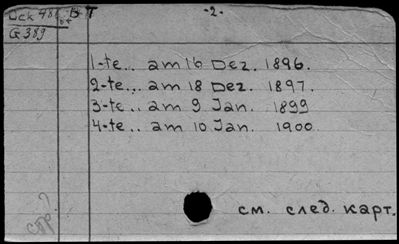 -2-
G 389
1-te... am 16 Dez. 1896.
2-te... am 18 Dez. 1897.
3-te... am 9 Jan. 1899
4-te... am 10 Jan. 1900.
см. след. карт.